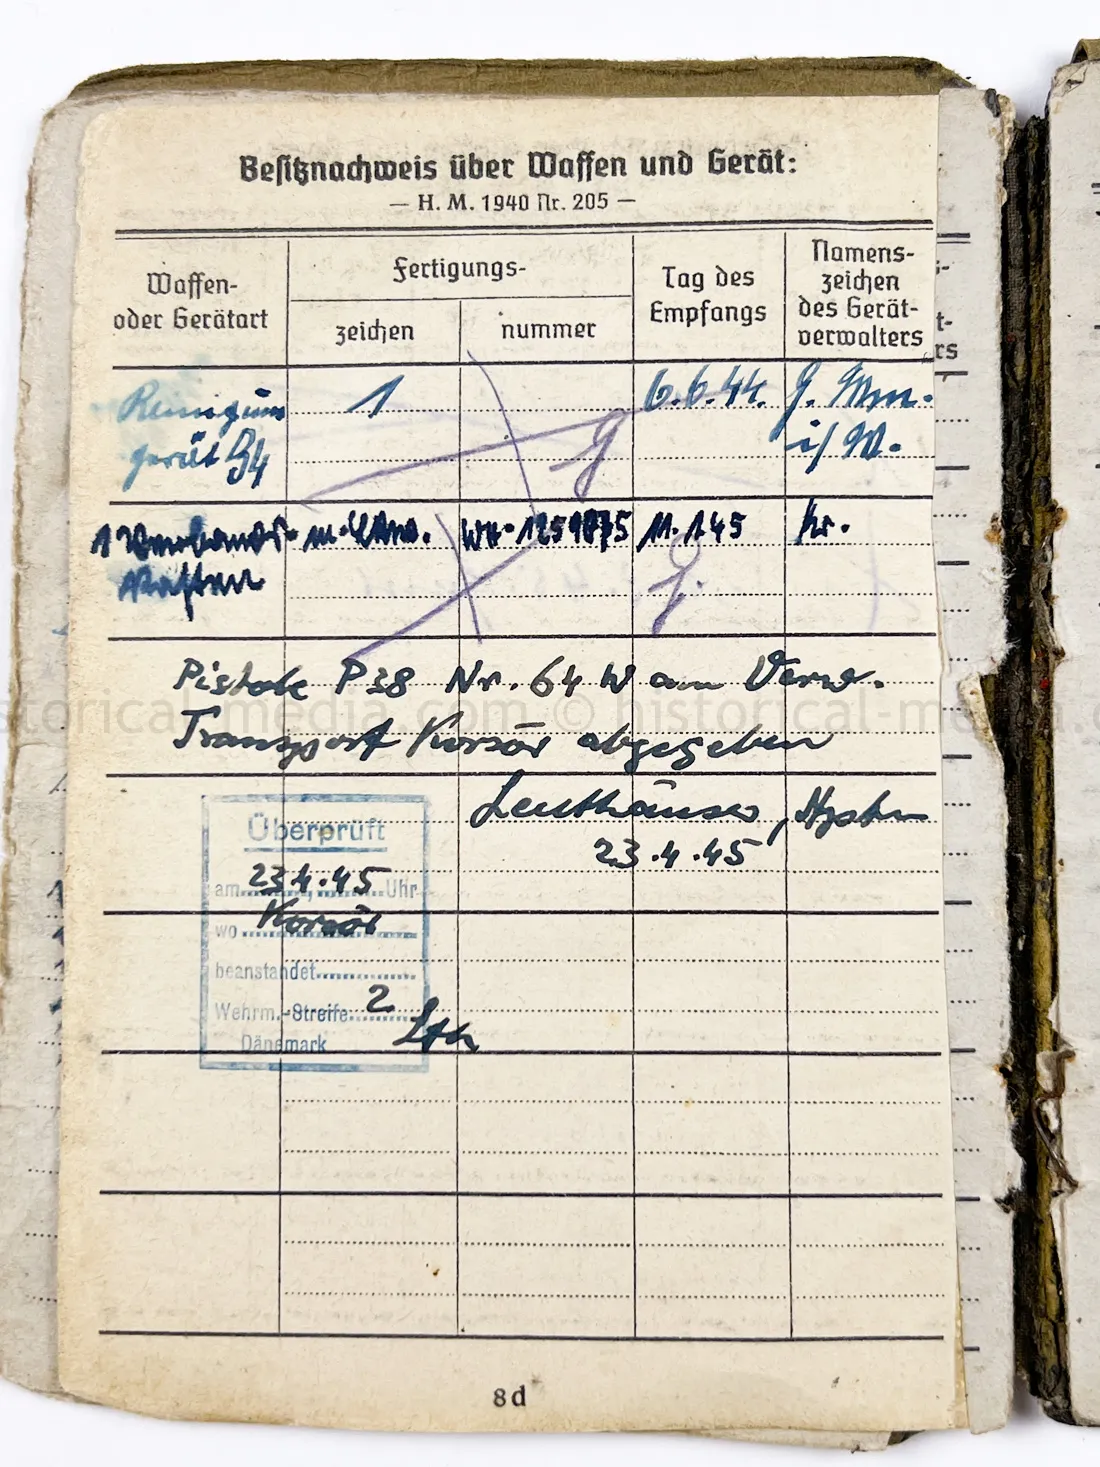 Besitznachweis über Waffen und Gerät:
— H. M. 1940 Nr. 205 —
Waffen-
oder Gerätart
Fertigungs-
zeichen
nummer
Tag des
Empfangs
Namens-
zeichen
des Gerät-
verwalters
Reinigun
gerät 34
1
6.6.44.
i/W.
1 Verbands-
kasten
1259875
11.1.45
Kr.
Pistole P 38 Nr. 64 W am Verw.
Transport Korsör abgegeben
Leuthäuser,
23.4.45
Überprüft
am 23.4.45 Uhr
wo Korsör
beanstandet
Wehrm.-Streife: 2
Dänemark
historical-media.com © historical-media.c
8 d